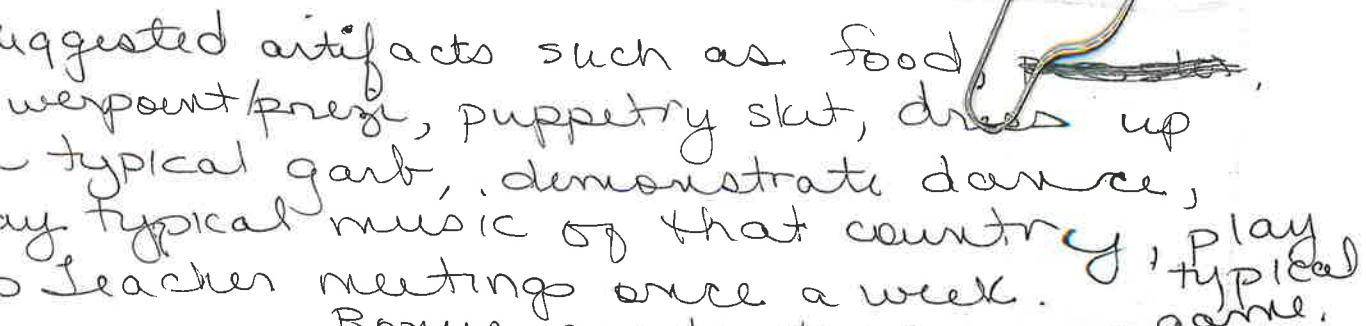 uggested artifacts such as food,
werpoint/prezi, puppetry skit, dress up
typical garb, demonstrate dance,
ay typical music of that country, play
typical
o Teacher meetings once a week.
game.